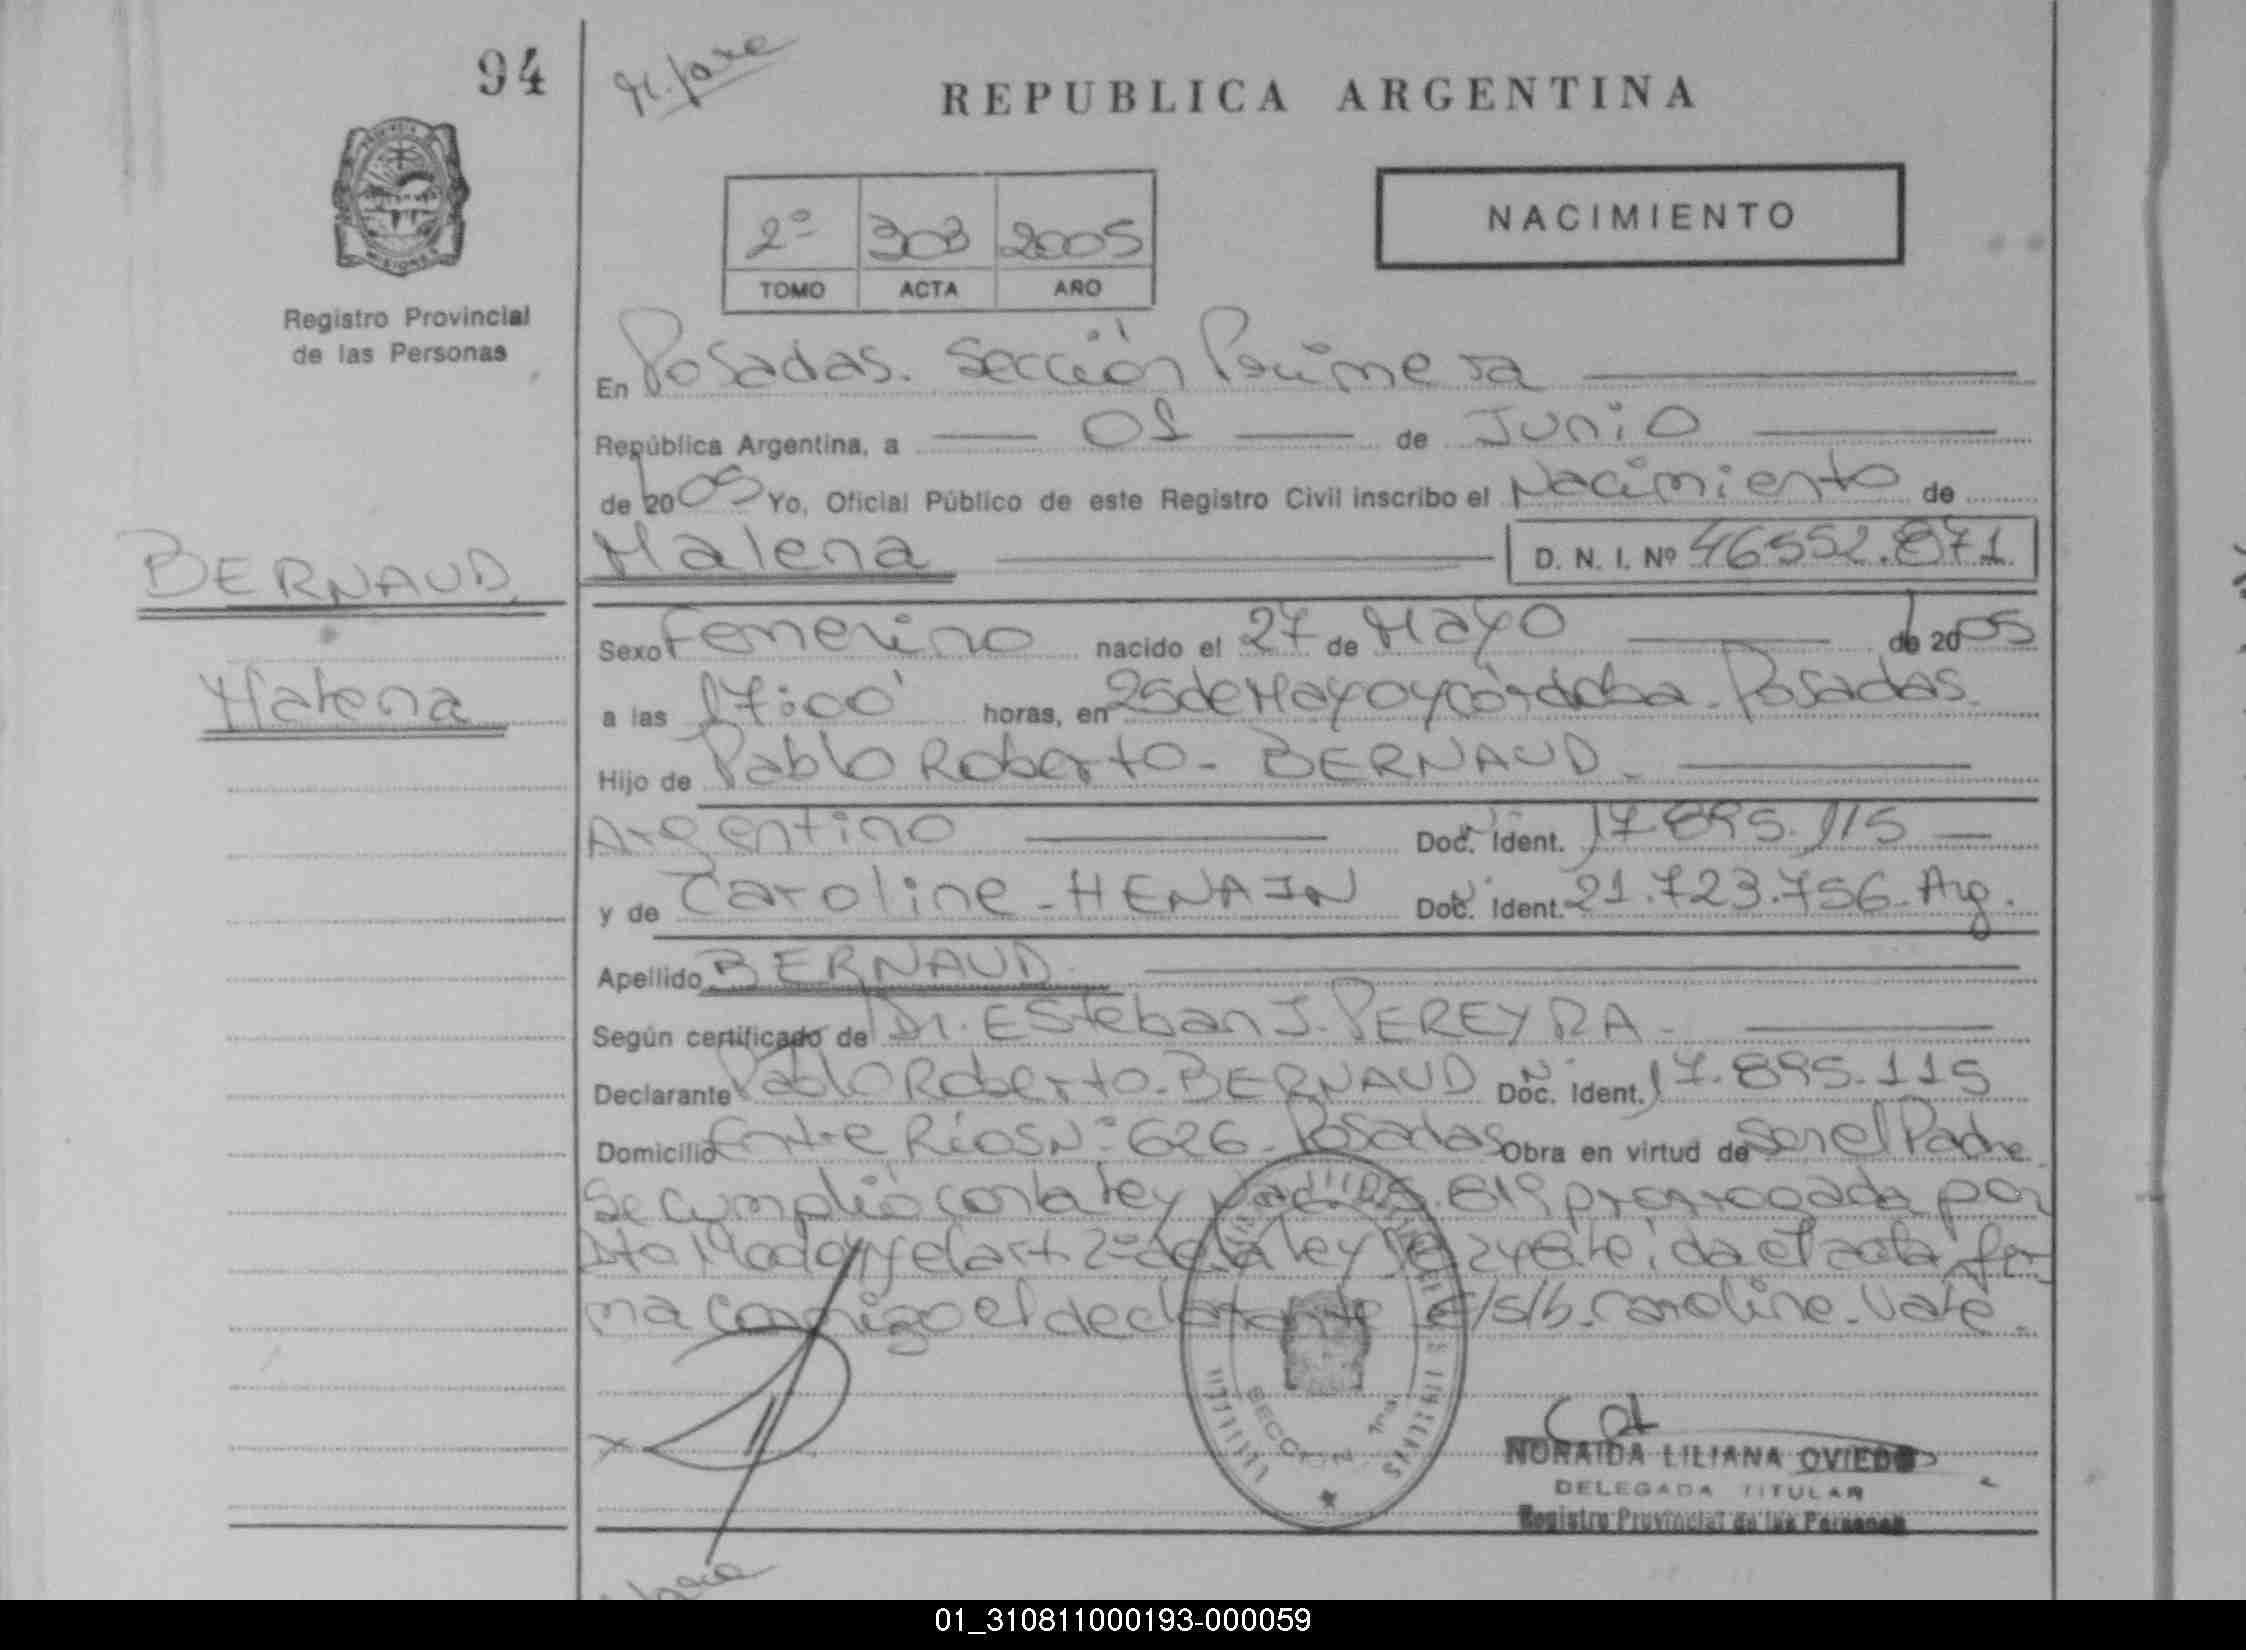 94
REPUBLICA ARGENTINA
NACIMIENTO
2º 303 2005
TOMO ACTA AÑO
PROVINCIA
MISIONES
Registro Provincial
de las Personas
En Posadas. Sección Primera
República Argentina, a 01 de Junio
de 2005 Yo, Oficial Público de este Registro Civil inscribo el Nacimiento de
BERNAUD
Malena
Malena D. N. I. Nº 46552.871
Sexo Femenino nacido el 27 de Mayo de 2005
a las 17:00' horas, en 25 de Mayo y Córdoba. Posadas.
Hijo de Pablo Roberto - BERNAUD.
Argentino Doc. Ident. 17.895.115
y de Caroline - HENAIN Doc. Ident. 21.723.756. Arg.
Apellido BERNAUD
Según certificado de Dr. Esteban J. PEREYRA.
Declarante Pablo Roberto. BERNAUD Doc. Ident. 17.895.115
Domicilio Entre Ríos Nº 626. Posadas Obra en virtud de Ser el Padre.
Se cumplió con la ley 25.819 prorrogada por
y el art 2º de la ley leída el acta fir
ma conmigo el declarante E/s/b. Caroline. Vale.
SECCION 1ra.
NORAIDA LILIANA OVIEDO
DELEGADA TITULAR
Registro Provincial de las Personas
01_310811000193-000059